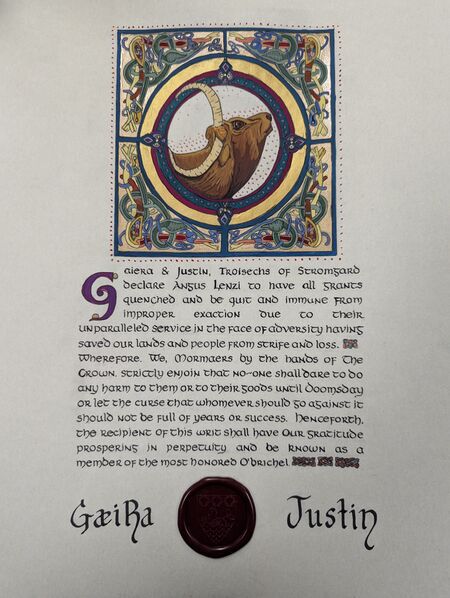 Gaiera & Justin, Troisechs of Stromgard
declare Angus Lenzi to have all grants
quenched and be quit and immune from
improper exaction due to their
unparalleled service in the face of adversity having
saved our lands and people from strife and loss.
Wherefore, We, Mormaers by the hands of the
Crown, strictly enjoin that no-one shall dare to do
any harm to them or to their goods until Doomsday
or let the curse that whomever should go against it
should not be full of years or success. Henceforth,
the recipient of this writ shall have our gratitude
prospering in perpetuity and be known as a
member of the most honored O'brichel
Gæira Justin